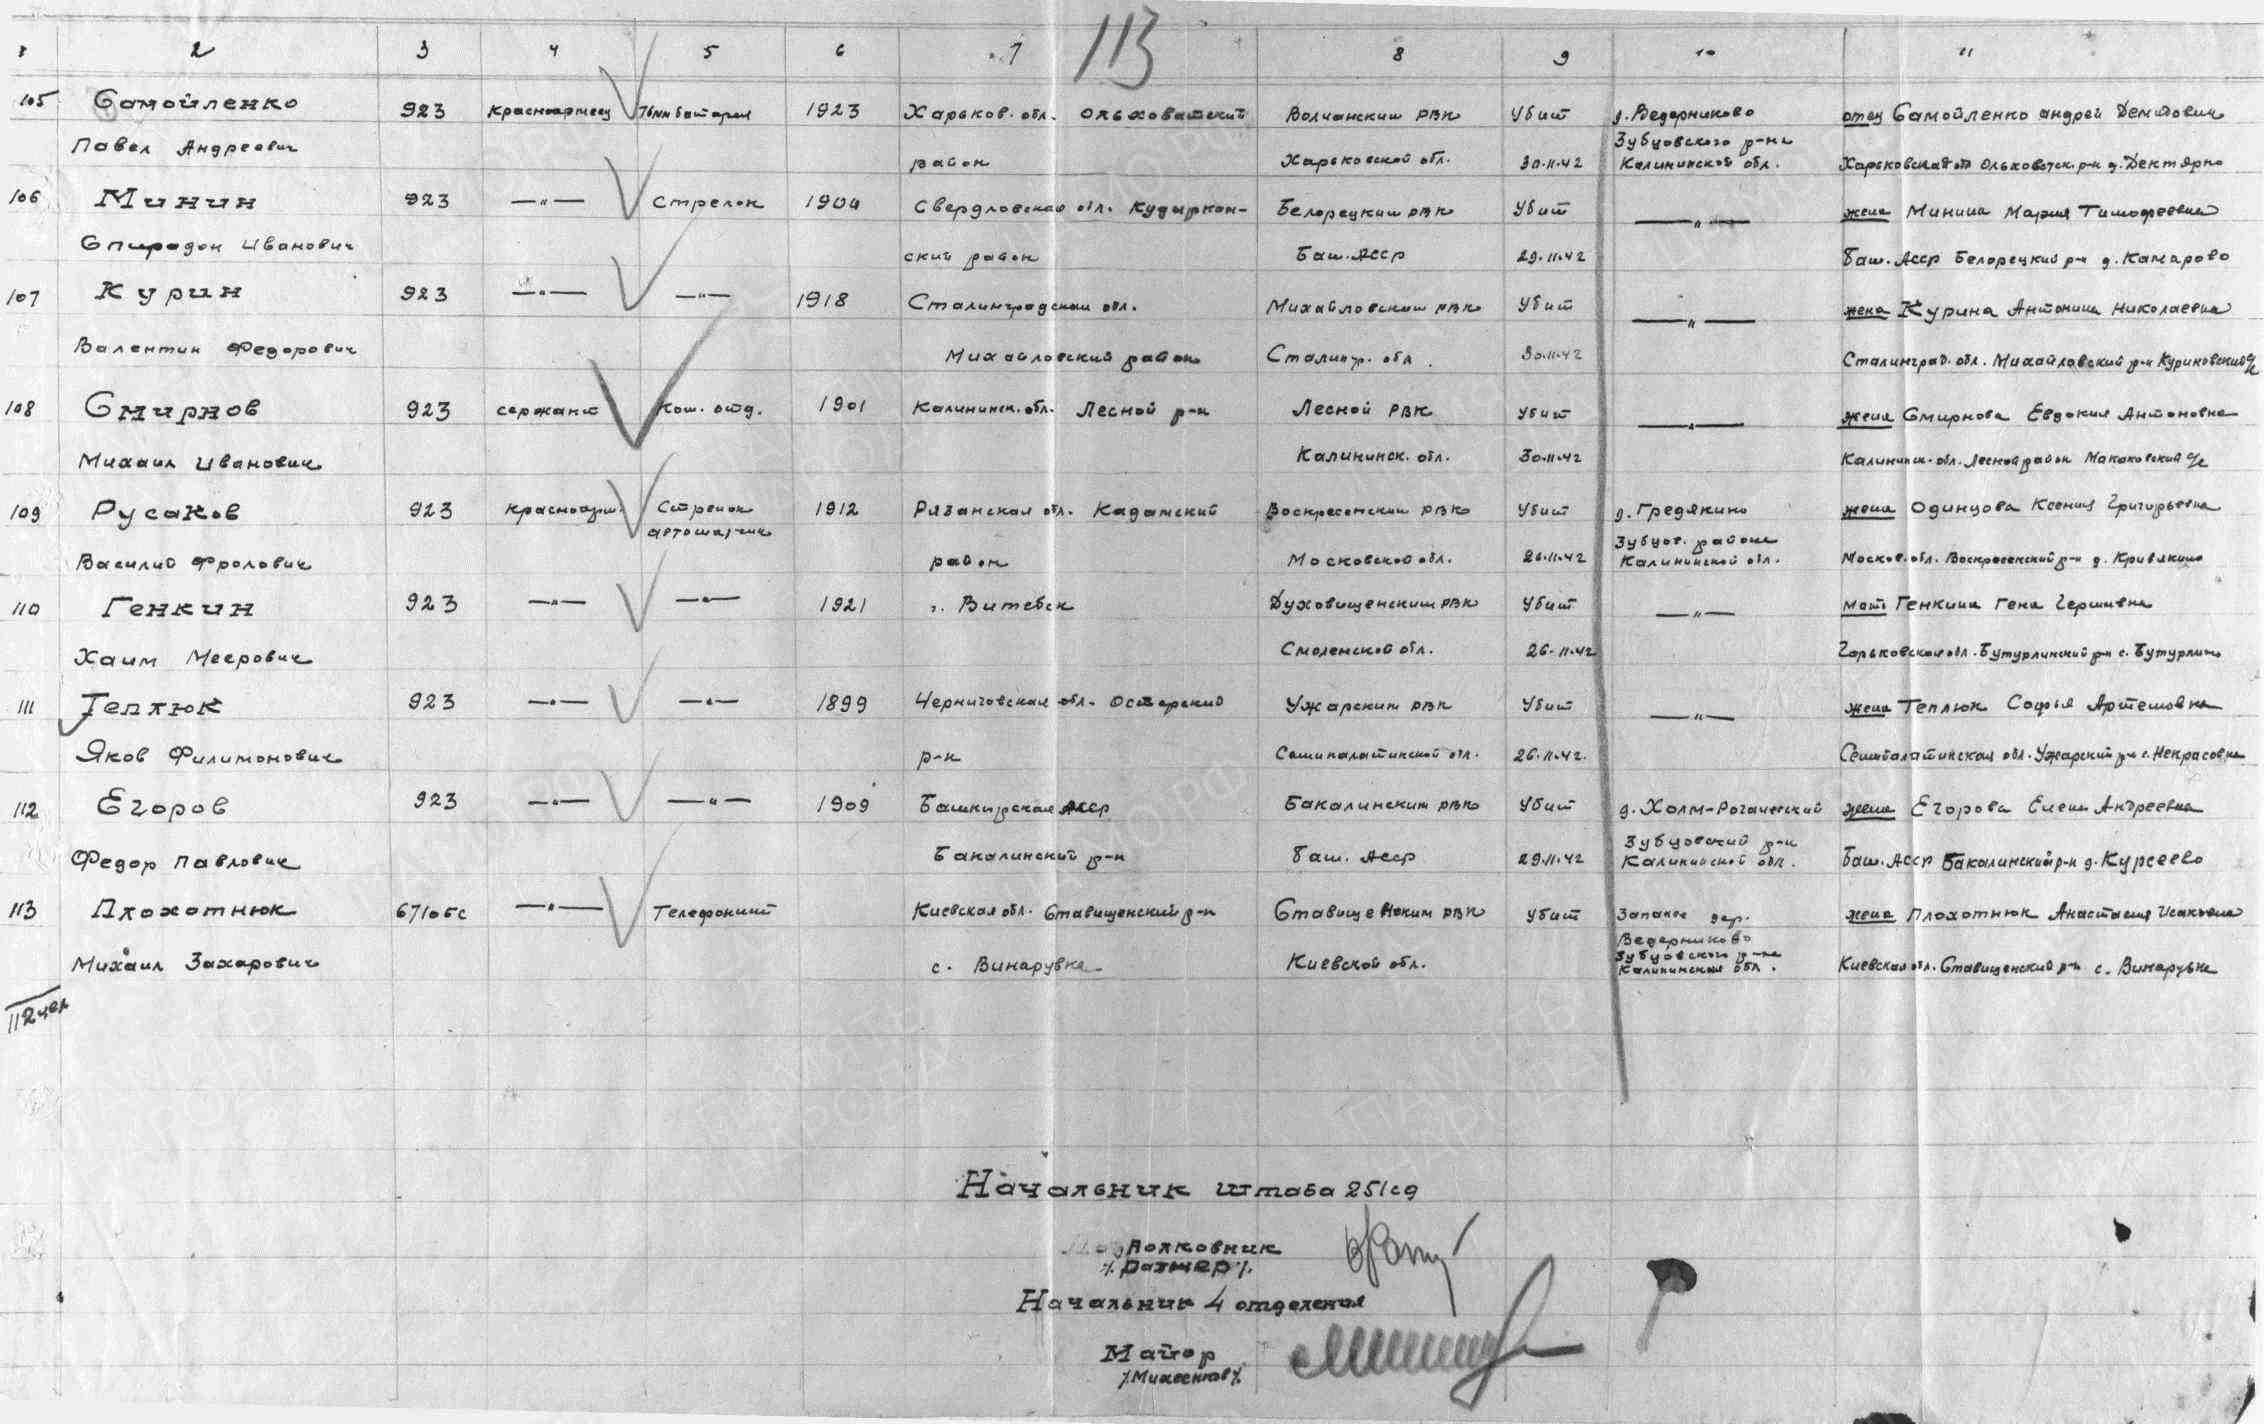 113
1 2 3 4 5 6 7 8 9 10 11
105 Самойленко 923 красноармеец 76мм батарея 1923 Харьков. обл. Ольховатский Волчанским РВК Убит д. Ведерниково отец Самойленко Андрей Демидович
Павел Андреевич район Харьковской обл. 30.11.42 Зубцовского р-на Калининской обл. Харьковская обл Ольховатск. р-н д.
106 Минин 923 —"— Стрелок 1904 Свердловская обл. Кудымкар- Белорецким РВК Убит —"— жена Минина Мария Тимофеевна
Спиродон Иванович ский район Баш. АССР 29.11.42 Баш. АССР Белорецкий р-н д. Камарово
107 Курин 923 —"— —"— 1918 Сталинградская обл. Михайловским РВК Убит —"— жена Курина Антонина Николаевна
Валентин Федорович Михайловский район Сталингр. обл. 30.11.42 Сталинград. обл. Михайловский р-н Куриновский с/с
108 Смирнов 923 сержант Ком. отд. 1901 Калининск. обл. Лесной р-н Лесной РВК Убит —"— жена Смирнова Евдокия Антоновна
Михаил Иванович Калининск. обл. 30.11.42 Калининск. обл. Лесной район с/с
109 Русаков 923 красноарм. Стрелок автоматчик 1912 Рязанская обл. Кадамский Воскресенским РВК Убит д. Гредякино жена Одинцова Ксения Григорьевна
Василий Фролович район Московской обл. 26.11.42 Зубцов. района Калининской обл. Москов. обл. Воскресенский р-н д. Кривякино
110 Генкин 923 —"— —"— 1921 г. Витебск Духовищенским РВК Убит —"— мать Генкина Гена Гершивна
Хаим Меерович Смоленской обл. 26.11.42 Горьковская обл. Бутурлинский р-н с. Бутурлино
111 Теплюк 923 —"— —"— 1899 Черниговская обл. Остерский Ужарским РВК Убит —"— жена Теплюк Софья Артемовна
Яков Филимонович р-н Семипалатинской обл. 26.11.42. Семипалатинская обл. Ужарский р-н с. Некрасовка
112 Егоров 923 —"— —"— 1909 Башкирская АССР Бакалинским РВК Убит д. Холм-Рогачевский жена Егорова Елена Андреевна
Федор Павлович Бакалинский р-н Баш. АССР 29.11.42 Зубцовский р-н Калининской обл. Баш. АССР Бакалинский р-н д. Курсеево
113 Плохотнюк 671 обс —"— Телефонист Киевская обл. Ставищенский р-н Ставищенским РВК Убит Западнее дер. жена Плохотнюк Анастасия Исаковна
Михаил Захарович с. Винарувка Киевской обл. Ведерниково Зубцовского р-на Калининская обл. Киевская обл. Ставищенский р-н с. Винарувка
112 чел
Начальник штаба 251 сд
Подполковник
/. Ратнер /.
Начальник 4 отделения
Майор